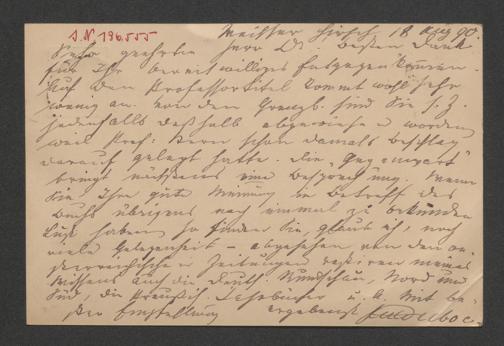 I.N. 196.555
Weisser Hirsch 18 Aug 90.
Sehr geehrter Herr Dr. Besten Dank
für Ihr bereitwilliges Entgegenkommen.
Auf den Professortitel kommt wohl sehr
wenig an. Von den Grenzb. sind Sie s. Z.
jedenfalls deßhalb abgewiesen worden
weil Prof. schon damals Beschlag
darauf gelegt hatte. Die „Gegenwart"
bringt nächstens eine Besprechung. Wenn
Sie Ihre gute Meinung in Betreff des
Buchs übrigens noch einmal zu bekunden
Lust haben, so finden Sie, glaub ich, noch
viele Gelegenheit – abgesehen von den
österreichischen Zeitungen meines
Wissens auch die Deutsch. Rundschau, Nord und
Süd, die Preußisch. Jahrbücher u. A. Mit be-
ster Empfehlung ergebenst Duboc